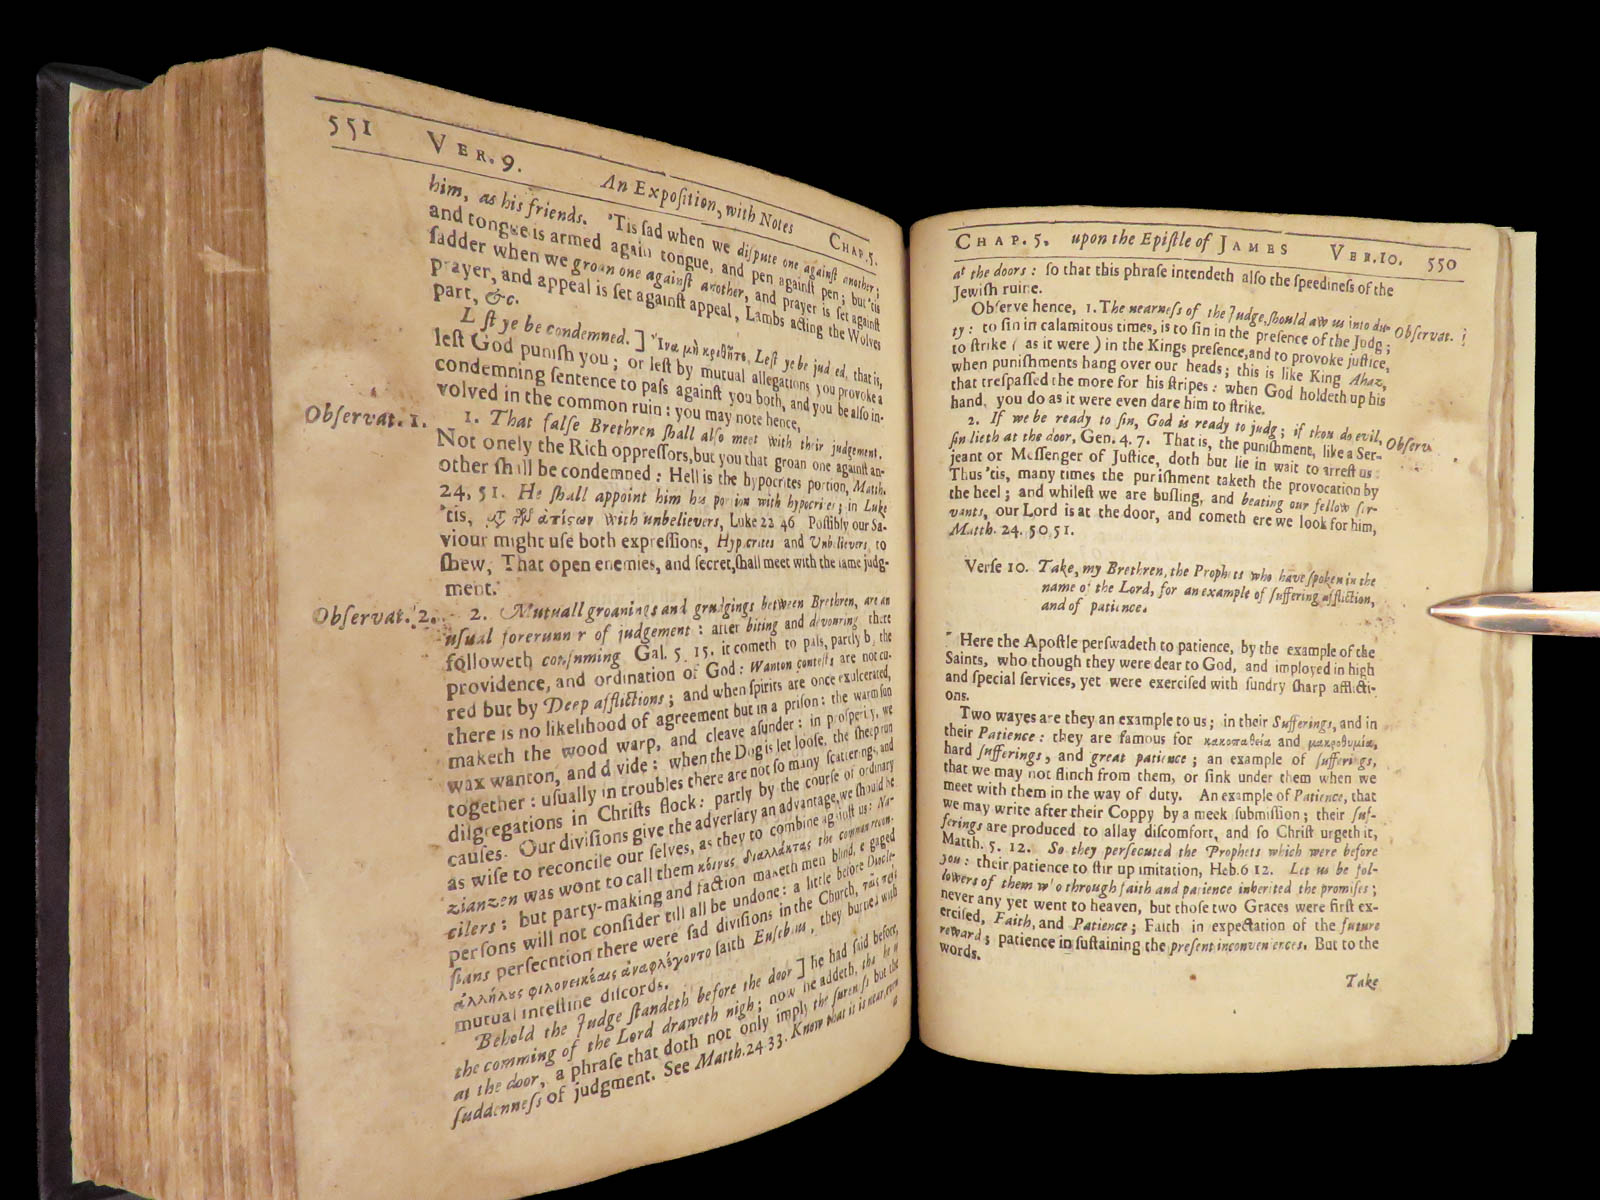 551 VER. 9. An Expoſition, with Notes CHAP. 5.
him, as his friends. 'Tis ſad when we diſpute one againſt another;
and tongue is armed again tongue, and pen againſt pen; but 'tis
ſadder when we groan one againſt another, and prayer is ſet againſt
prayer, and appeal is ſet againſt appeal, Lambs acting the Wolves
part, &c.
L ſt ye be condemned. ] Ἵνα μὴ κριθῆτε, Leſt ye be jud ed, that is,
leſt God puniſh you; or leſt by mutual allegations you provoke a
condemning ſentence to paſs againſt you both, and you be alſo in-
volved in the common ruin: you may note hence,
Obſervat. 1.
1. That falſe Brethren ſhall alſo meet with their judgement.
Not onely the Rich oppreſſors, but you that groan one againſt an-
other ſhall be condemned: Hell is the hypocrites portion, Matth.
24, 51. He ſhall appoint him his portion with hypocrites; in Luke
'tis, ἀπίςων with unbelievers, Luke 22 46 Poſſibly our Sa-
viour might uſe both expreſſions, Hypocrites and Unbelievers, to
ſhew, That open enemies, and ſecret, ſhall meet with the ſame judg-
ment.
Obſervat. 2.
2. Mutuall groanings and grudgings between Brethren, are an
uſual forerunn r of judgement: after biting and devouring there
followeth conſuming Gal. 5. 15. it cometh to paſs, partly by the
providence, and ordination of God: Wanton conteſts are not cu-
red but by Deep afflictions; and when ſpirits are once exulcerated,
there is no likelihood of agreement but in a priſon: the warm ſun
maketh the wood warp, and cleave aſunder: in proſperity, we
wax wanton, and d vide: when the Dog is let looſe, the ſheep run
together: uſually in troubles there are not ſo many ſcatterings, and
diſgregations in Chriſts flock: partly by the courſe of ordinary
cauſes. Our diviſions give the adverſary an advantage, we ſhould be
as wiſe to reconcile our ſelves, as they to combine againſt us: Na-
zianzen was wont to call them κοίνους διαλλάκτας the common recon-
cilers: but party-making and faction maketh men blind, e gaged
perſons will not conſider till all be undone: a little before Diocle-
ſians perſecution there were ſad diviſions in the Church, ταῖς πρὸς
ἀλλήλους φιλονεικέιαις ἀναφλέγοντο ſaith Euſebius, they burned with
mutual inteſtine diſcords.
Behold the Judge ſtandeth before the door ] he had ſaid before,
the comming of the Lord draweth nigh; now he addeth, tha he is
at the door, a phraſe that doth not only imply the ſureneſs but the
ſuddenneſs of judgment. See Matth. 24 33. Know that it is near, even
a
CHAP. 5. upon the Epiſtle of JAMES VER. 10. 550
at the doors: ſo that this phraſe intendeth alſo the ſpeedineſs of the
Jewiſh ruine.
Obſerve hence, 1. The nearneſs of the Judge, ſhould aw us into du-
Obſervat. 1
ty: to ſin in calamitous times, is to ſin in the preſence of the Judg;
to ſtrike ( as it were ) in the Kings preſence, and to provoke juſtice,
when puniſhments hang over our heads; this is like King Ahaz,
that treſpaſſed the more for his ſtripes: when God holdeth up his
hand, you do as it were even dare him to ſtrike.
2. If we be ready to ſin, God is ready to judg; if thou do evil,
Obſerv
ſin lieth at the door, Gen. 4. 7. That is, the puniſhment, like a Ser-
jeant or Meſſenger of Juſtice, doth but lie in wait to arreſt us:
Thus 'tis, many times the puniſhment taketh the provocation by
the heel; and whileſt we are buſling, and beating our fellow ſer-
vants, our Lord is at the door, and cometh ere we look for him,
Matth. 24. 50, 51.
Verſe 10. Take, my Brethren, the Prophets who have ſpoken in the
name of the Lord, for an example of ſuffering affliction,
and of patience.
Here the Apoſtle perſwadeth to patience, by the example of the
Saints, who though they were dear to God, and imployed in high
and ſpecial ſervices, yet were exerciſed with ſundry ſharp afflicti-
ons.
Two wayes are they an example to us; in their Sufferings, and in
their Patience: they are famous for κακοπαθεία and μακροθυμία,
hard ſufferings, and great patience; an example of ſufferings,
that we may not flinch from them, or ſink under them when we
meet with them in the way of duty. An example of Patience, that
we may write after their Coppy by a meek ſubmiſſion; their ſuf-
ferings are produced to allay diſcomfort, and ſo Chriſt urgeth it,
Matth. 5. 12. So they perſecuted the Prophets which were before
you: their patience to ſtir up imitation, Heb. 6 12. Let us be fol-
lowers of them w o through faith and patience inherited the promiſes;
never any yet went to heaven, but thoſe two Graces were firſt ex-
erciſed, Faith, and Patience; Faith in expectation of the future
reward; patience in ſuſtaining the preſent inconveniences. But to the
words.
Take